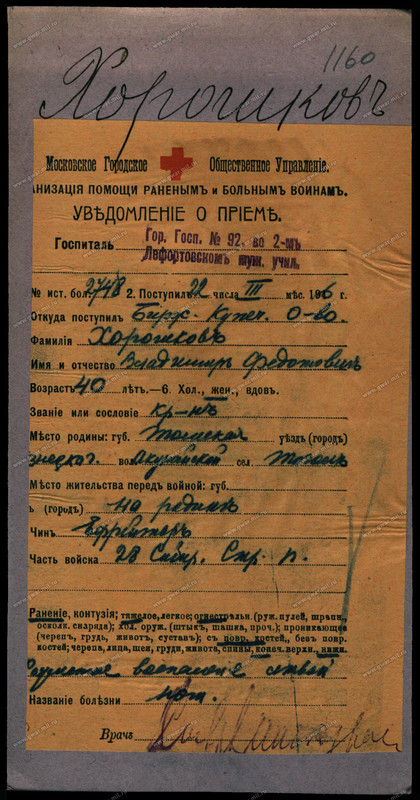 1160
Хорошковъ
Московское Городское Общественное Управленіе.
АНИЗАЦІЯ ПОМОЩИ РАНЕНЫМЪ и БОЛЬНЫМЪ ВОИНАМЪ.
УВѢДОМЛЕНІЕ О ПРІЕМѢ.
Госпиталь Гор. Госп. № 92, во 2-мъ
Лефортовскомъ муж. учил.
№ ист. бол. 2748 2. Поступилъ 22 числа III мѣс. 1916 г.
Откуда поступилъ Бирж. Купеч. О-во.
Фамилія Хорошковъ
Имя и отчество Владиміръ Федотовичъ
Возрастъ 40 лѣтъ.—6. Хол., жен., вдов.
Званіе или сословіе кр-нъ
Мѣсто родины: губ. Томская уѣздъ (городъ)
вол. сел.
Мѣсто жительства передъ войной: губ.
ъ (городъ) на родинѣ
Чинъ Ефрейторъ
Часть войска 28 Сибир. Стр. п.
Раненіе, контузія; тяжелое, легкое; огнестрѣльн. (руж. пулей, шрапн.,
осколк. снаряда); хол. оруж. (штыкъ, шашка, проч.); проникающее
(черепъ, грудь, животъ, суставъ); съ повр. костей, безъ повр.
костей; черепа, лица, шеи, груди, живота, спины, конеч. верхн., нижн.
воспаленіе
Названіе болѣзни
Врачъ